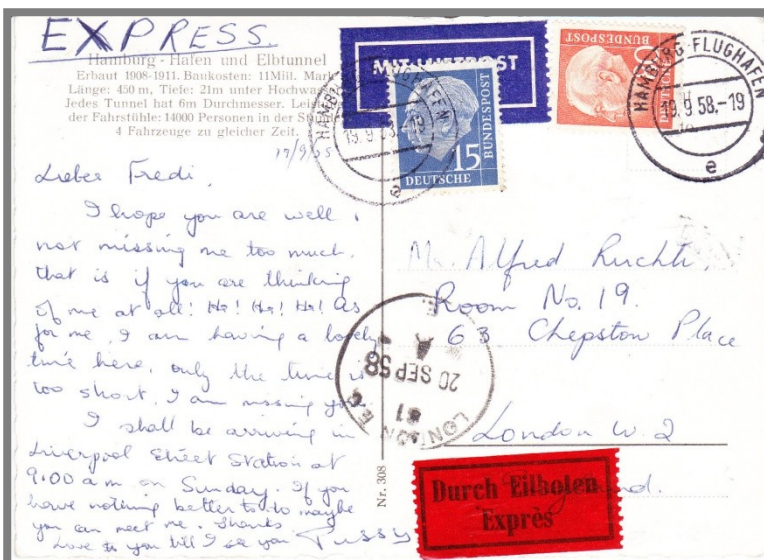 EXPRESS.
Hamburg - Hafen und Elbtunnel
Erbaut 1908-1911. Baukosten: 11Mill. Mark
Länge: 450 m, Tiefe: 21m unter Hochwas
Jedes Tunnel hat 6m Durchmesser. Lei
der Fahrstühle: 14000 Personen in der Stun
4 Fahrzeuge zu gleicher Zeit.
19/9/58
Lieber Fredi,
I hope you are well,
not missing me too much,
that is if you are thinking
of me at all! Ha! Ha! Ha! As
for me, I am having a lovely
time here, only the time is
too short. I am missing you.
I shall be arriving in
Liverpool Street Station at
9.00 a.m on Sunday. If you
have nothing better to do maybe
you can meet me. Thanks
Love to you till I see you Pussy
MIT LUFTPOST
15
DEUTSCHE
BUNDESPOST
HAMBURG-FLUGHAFEN
19.9.58.-19
e
BUNDESPOST
DEUTSCHE
HAMBURG-FLUGHAFEN
19.9.58.-19
e
Mr. Alfred Ruchti,
Room No. 19.
63 Chepstow Place
London W.2
LONDON E.C.
81
20 SEP 58
A
Nr. 308
Durch Eilboten
Exprès